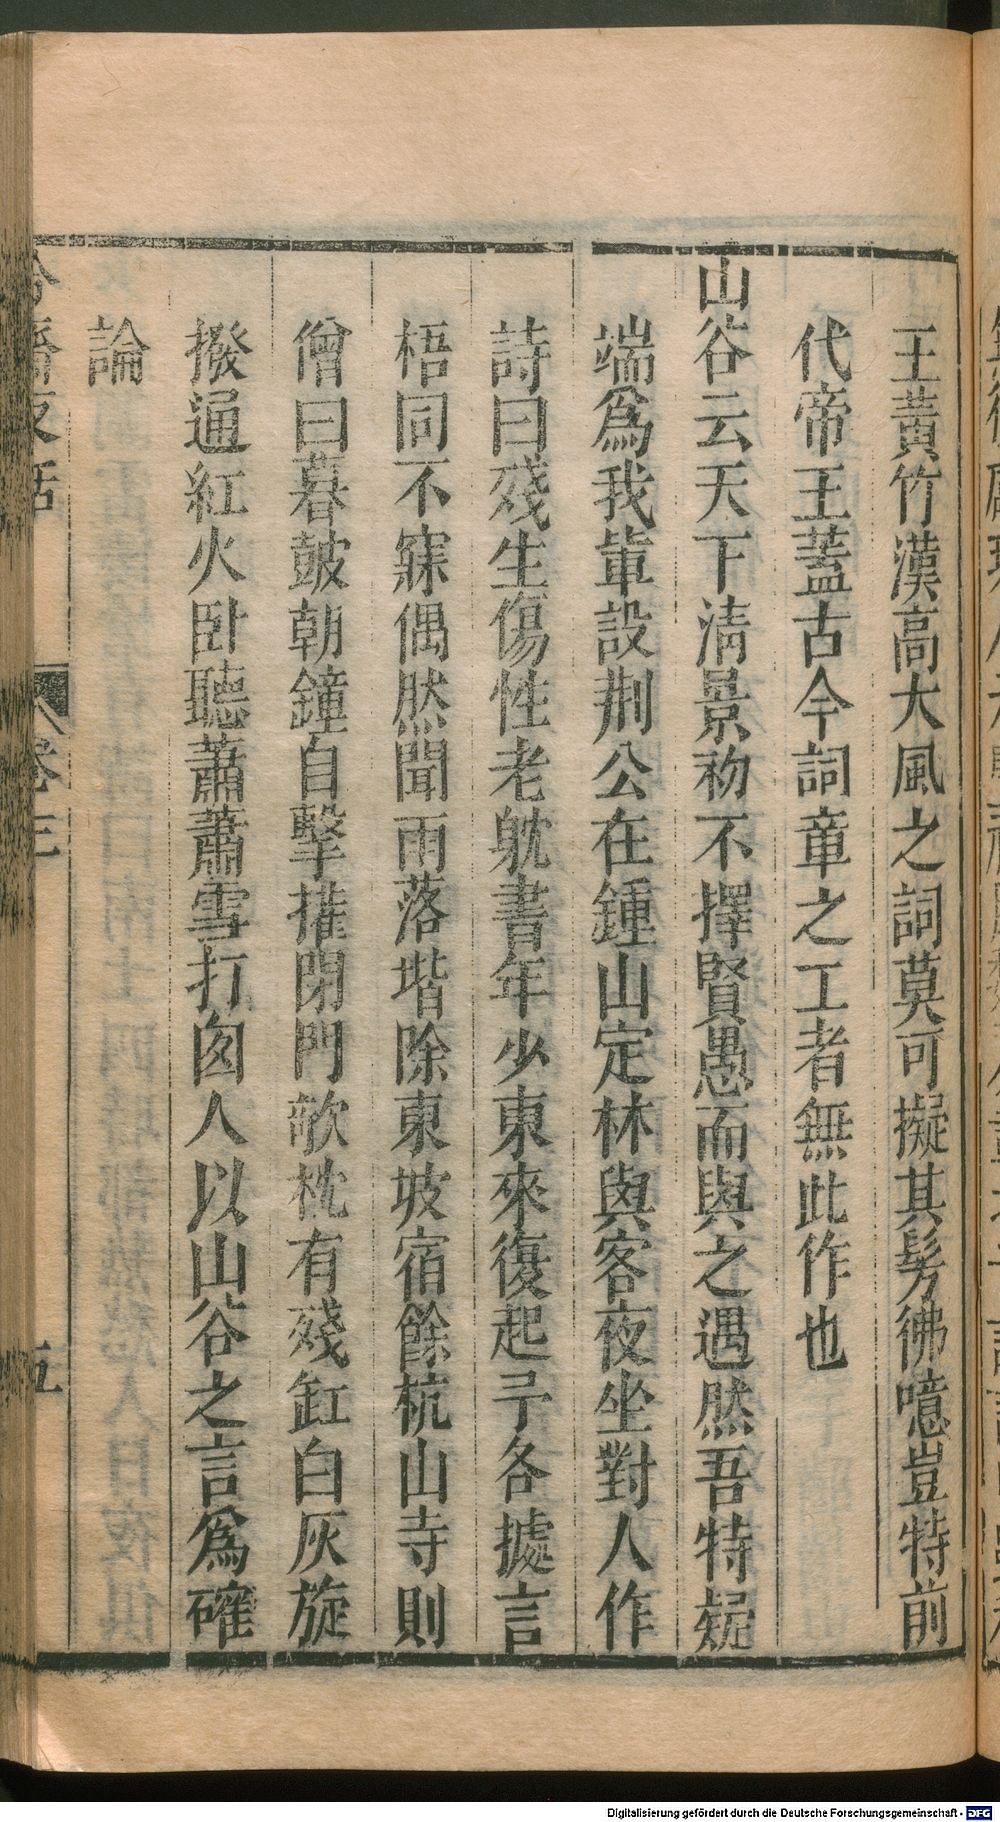 王黃竹漢高大風之詞莫可擬其髣彿噫豈特前
代帝王蓋古今詞章之工者無此作也
山谷云天下清景初不擇賢愚而與之遇然吾特疑
端爲我軰設荆公在鍾山定林與客夜坐對人作
詩曰殘生傷性老躭書年少東來復起予各據言
梧同不寐偶然聞雨落堦除東坡宿餘杭山寺則
僧曰暮皷朝鐘自擊撞閉門欹枕有殘缸白灰旋
撥通紅火卧聽蕭蕭雪打囱人以山谷之言爲確
論
冷齋夜話
卷三
五
Digitalisierung gefördert durch die Deutsche Forschungsgemeinschaft - DFG